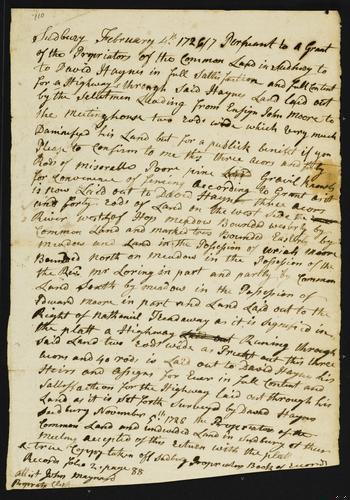 710
Sudbury February 4th 1726/7 Persuant to a Grant
of the Propriators of the Common Land in Sudbury to
to David Haynes in full Sattisfaction and full Content
for a Highway through Said Haynes Land laid out
by the Sellectmen Leading from Ensign John Moore to
the Meetinghouse two rods wide which very much
Damnified his Land but for a publick benifit if you
Please to Confirm to me this three acors and forty
Rods of miserable Poore pine Gravil
for Conveniance of fencing according to Grant
is now Laid out to David Haynes three acors
and forty rods of Land on the west Side
River west of Hop meadow Bounded westerly by
Common Land and marked trees bounded Easterly by
meadow and Land in the Possesion of Uriah Moore
Bounded north on meadow in the Possesion of the
the Revd mr Loring in part and partly by Common
Land South by meadow in the Possession of
Edward moore in part and Land Laid out to the
Right of nathaniel Treadaway as it is Signified in
the platt a Highway Runing through
Said Land two rods wide as Prickt out this three
acors and 40 rods is Laid out to David Haynes his
Heirs and assigns for Ever in full Content and
Sattisfaction for the Highway laid out through his
Land as it is Set forth Surveyed by David Haynes
Sudbury November 5th 1728 the Propriators of the
Common Land and undivided Land in Sudbury at their
meeting accepted of this Return with the platt
a true Coppy taken off Sudbury Propriators Book of Records
Records folio 2: page 88
attest John Maynard
Propriators Clerk